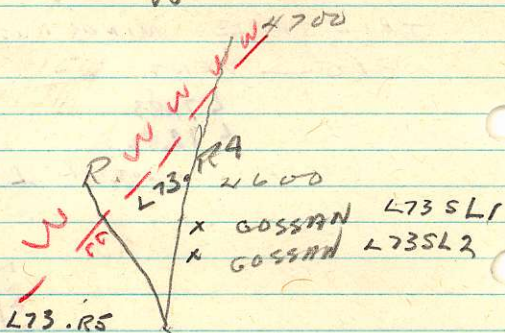 4700
W
W
W
W
R.
L73.R4
4600
W
x GOSSAN L73SL1
x GOSSAN L73SL2
L73.R5